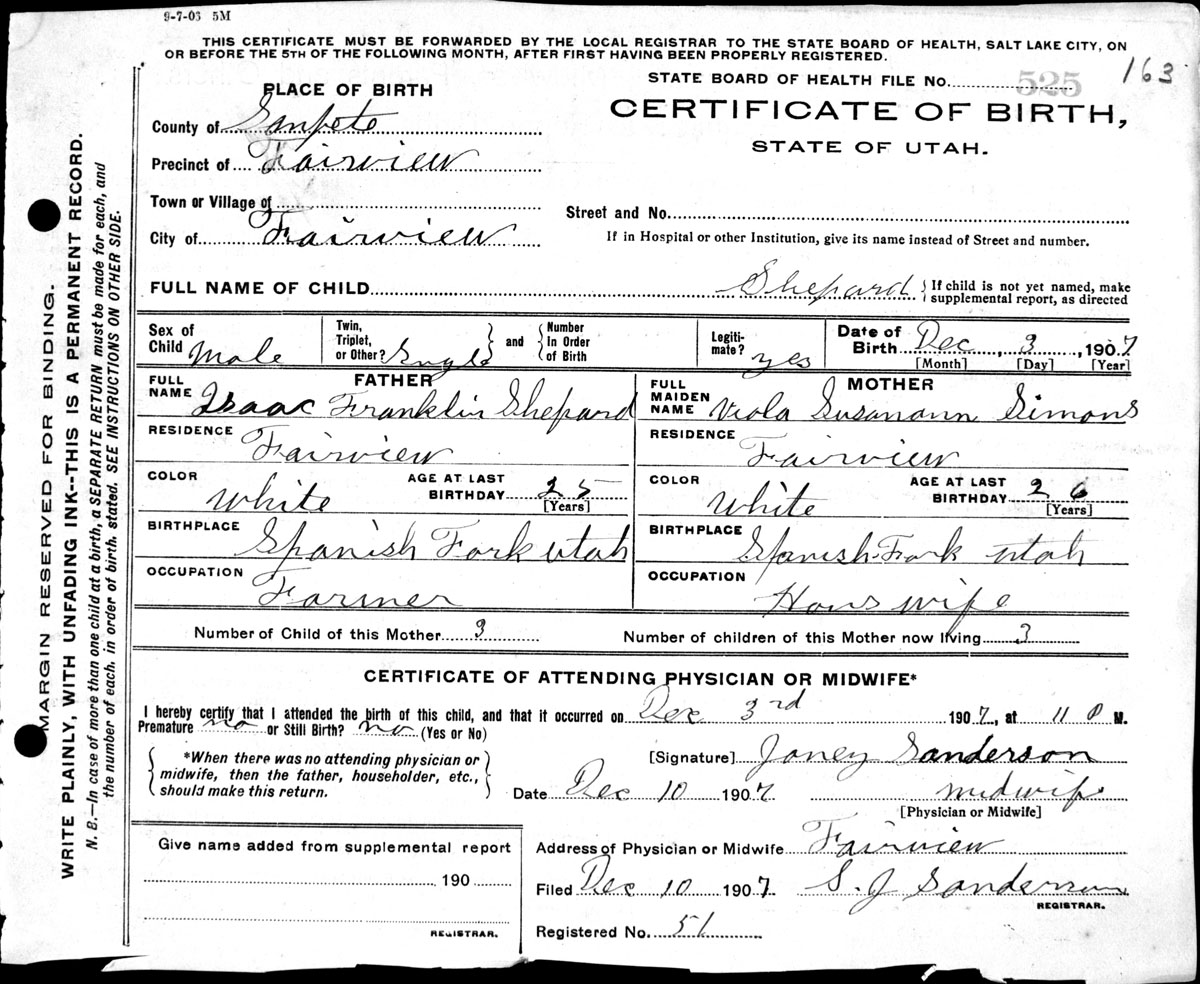 9-7-03 5M
THIS CERTIFICATE MUST BE FORWARDED BY THE LOCAL REGISTRAR TO THE STATE BOARD OF HEALTH, SALT LAKE CITY, ON
OR BEFORE THE 5TH OF THE FOLLOWING MONTH, AFTER FIRST HAVING BEEN PROPERLY REGISTERED.
163
STATE BOARD OF HEALTH FILE No. 525
PLACE OF BIRTH
CERTIFICATE OF BIRTH,
STATE OF UTAH.
County of Sanpete
Precinct of Fairview
Town or Village of
Street and No.
City of Fairview
If in Hospital or other Institution, give its name instead of Street and number.
FULL NAME OF CHILD Shepard { If child is not yet named, make
supplemental report, as directed
Sex of
Child Male
Twin,
Triplet,
or Other? Single } and { Number
In Order
of Birth
Legiti-
mate? yes
Date of
Birth Dec, 3, 1907
[Month] [Day] [Year]
FATHER
FULL
NAME Isaac Franklin Shepard
MOTHER
FULL
MAIDEN
NAME Viola Susanann Simons
RESIDENCE Fairview
RESIDENCE Fairview
COLOR White
AGE AT LAST
BIRTHDAY 25
[Years]
COLOR White
AGE AT LAST
BIRTHDAY 26
[Years]
BIRTHPLACE Spanish Fork utah
BIRTHPLACE Spanish Fork utah
OCCUPATION Farmer
OCCUPATION Hous wife
Number of Child of this Mother 3
Number of children of this Mother now living 3
CERTIFICATE OF ATTENDING PHYSICIAN OR MIDWIFE*
I hereby certify that I attended the birth of this child, and that it occurred on Dec 3rd 1907, at 11 P M.
Premature no or Still Birth? no (Yes or No)
{ *When there was no attending physician or
midwife, then the father, householder, etc.,
should make this return. }
[Signature] Janey Sanderson
Date Dec 10 1907 midwife
[Physician or Midwife]
Give name added from supplemental report
190
REGISTRAR.
Address of Physician or Midwife Fairview
Filed Dec 10 1907 S. J Sanderson
REGISTRAR.
Registered No. 51
MARGIN RESERVED FOR BINDING.
WRITE PLAINLY, WITH UNFADING INK--THIS IS A PERMANENT RECORD.
N. B.—In case of more than one child at a birth, a SEPARATE RETURN must be made for each, and
the number of each, in order of birth, stated. SEE INSTRUCTIONS ON OTHER SIDE.